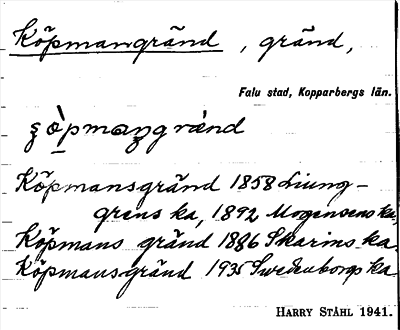 Köpmangränd, gränd,
Falu stad, Kopparbergs län.
Köpmansgränd 1858 Ljung-
grens ka, 1892 Mogensens ka,
Köpmans gränd 1886 Skarins ka.
Köpmansgränd 1935 Swedenborgs ka
HARRY STÅHL 1941.